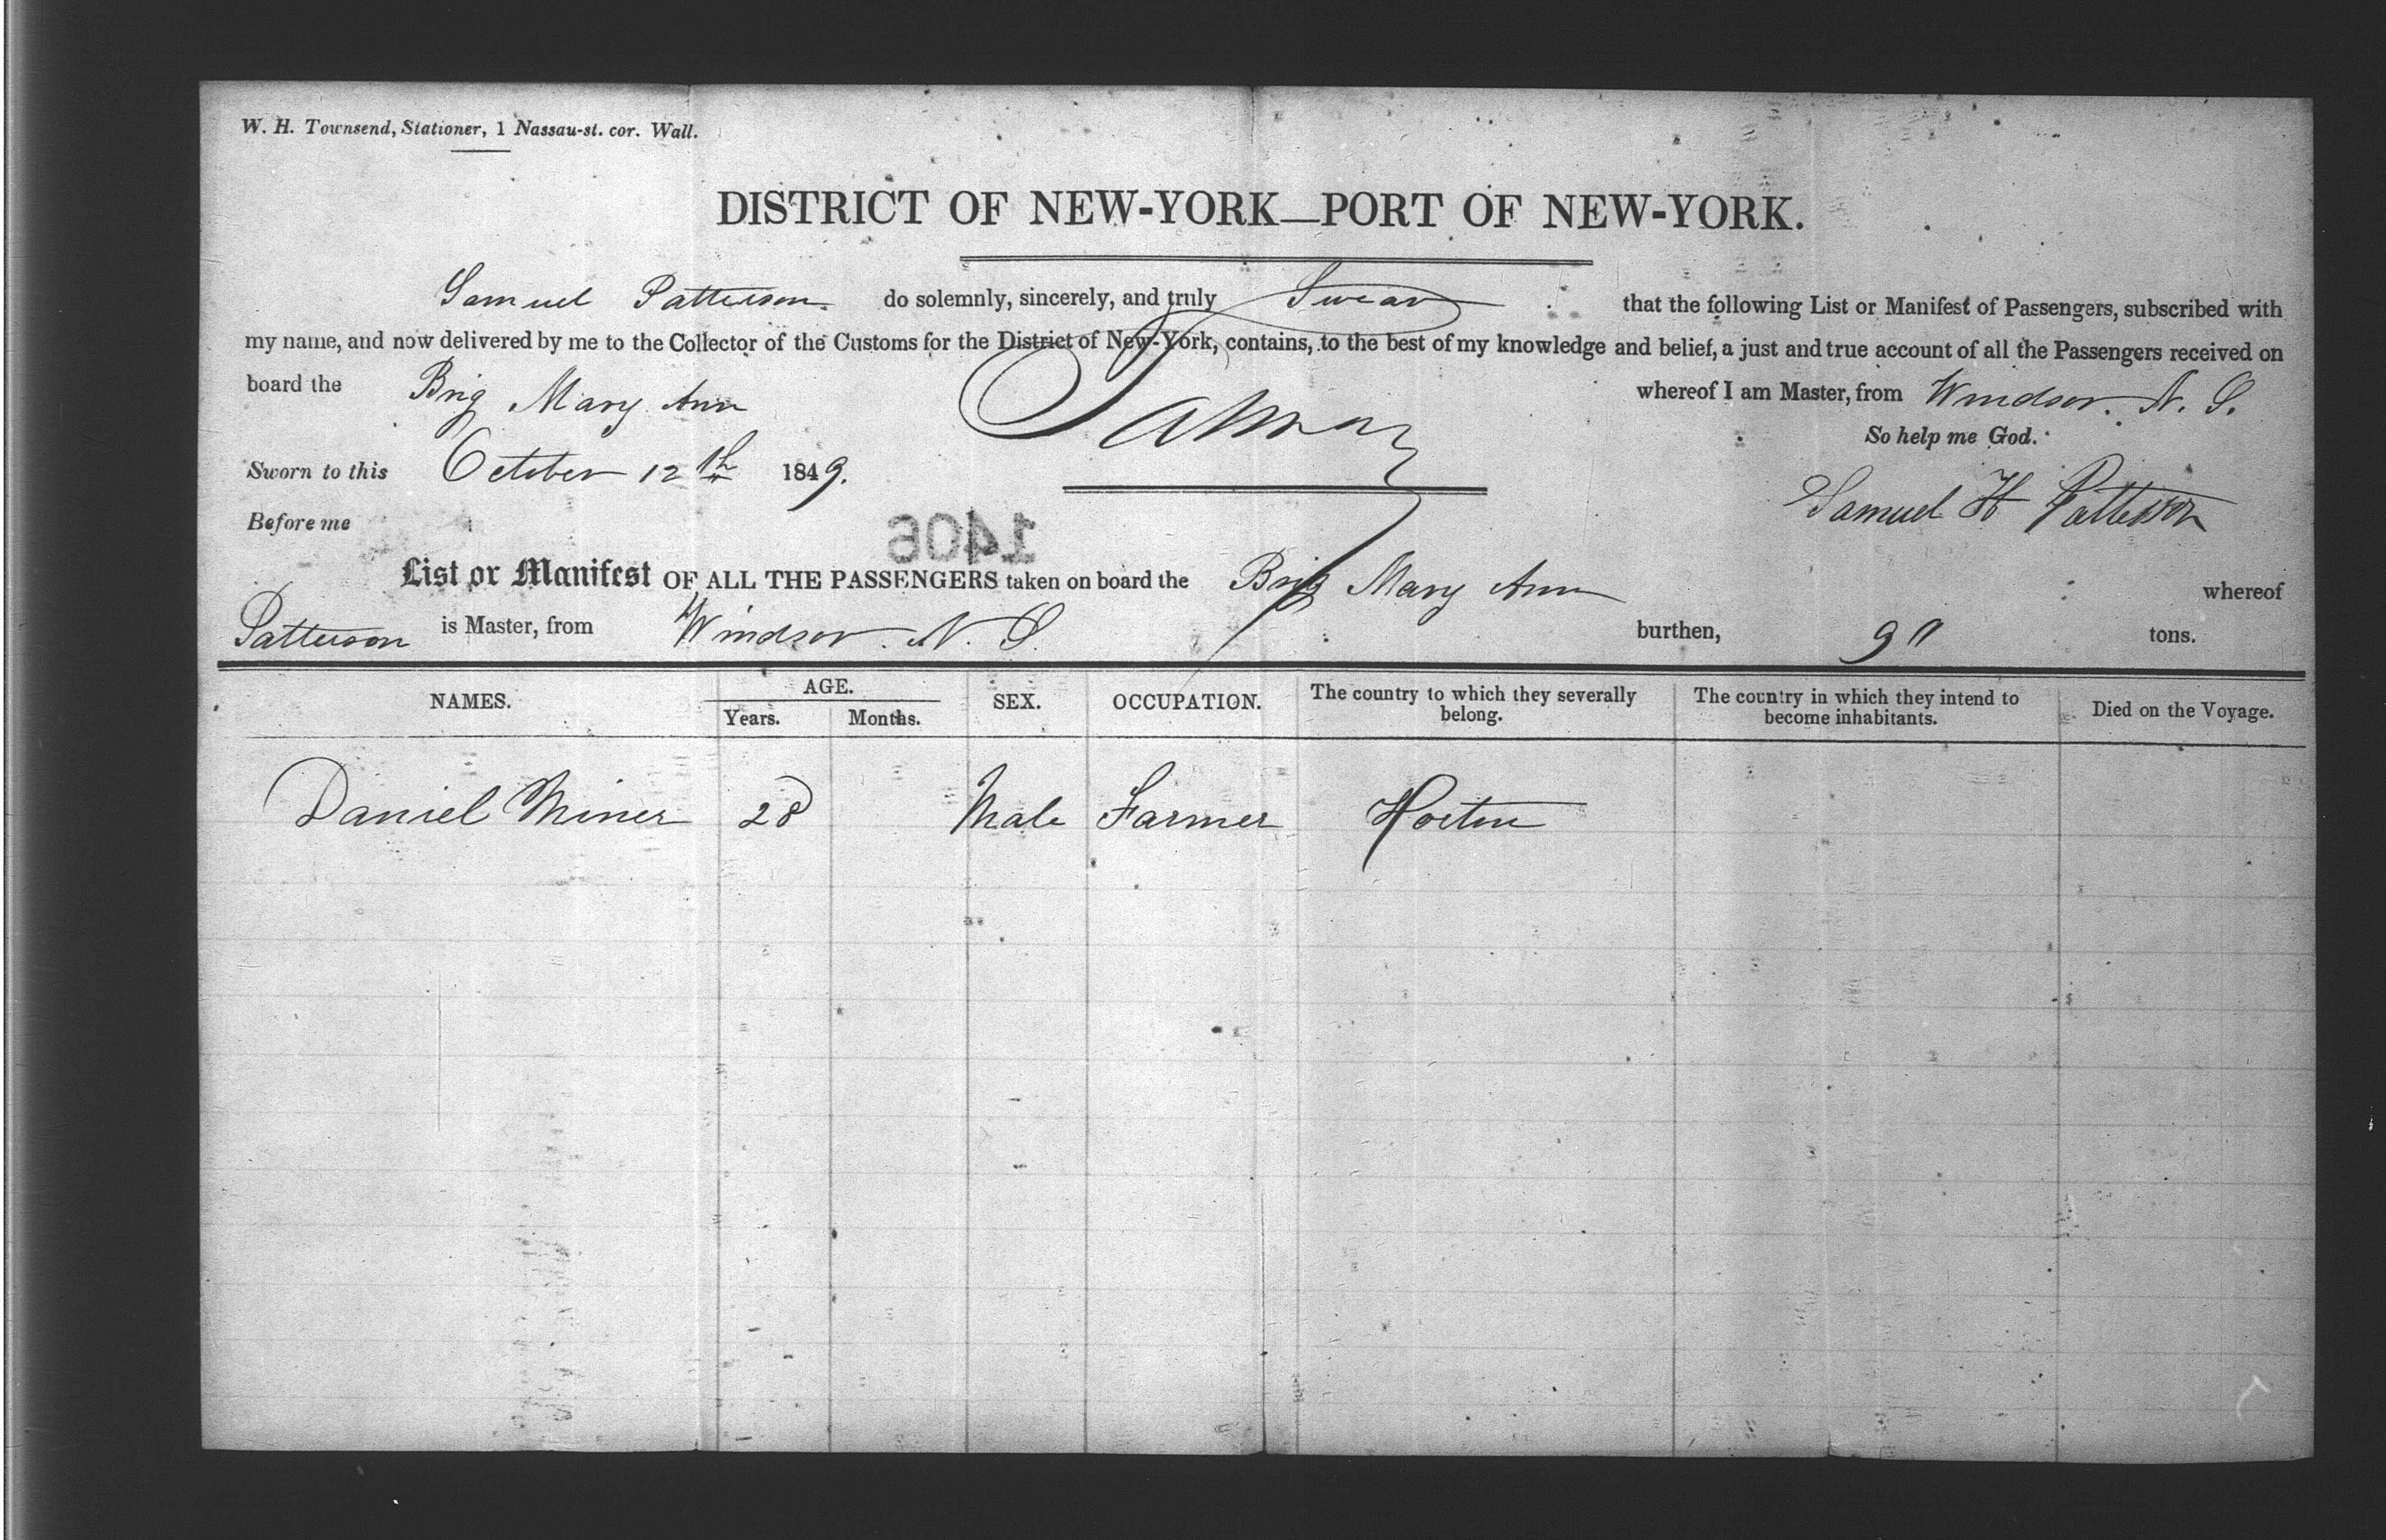 W. H. Townsend, Stationer, 1 Nassau-st. cor. Wall.
DISTRICT OF NEW-YORK—PORT OF NEW-YORK.
Samuel Patterson do solemnly, sincerely, and truly Swear that the following List or Manifest of Passengers, subscribed with
my name, and now delivered by me to the Collector of the Customs for the District of New-York, contains, to the best of my knowledge and belief, a just and true account of all the Passengers received on
board the Brig Mary Ann whereof I am Master, from Windsor. N. S.
So help me God.
Sworn to this October 12th 1849. Samuel H Patterson
Before me
1406
List or Manifest OF ALL THE PASSENGERS taken on board the Brig Mary Ann whereof
Patterson is Master, from Windsor. N. S. burthen, tons.
NAMES. AGE. SEX. OCCUPATION. The country to which they severally belong. The country in which they intend to become inhabitants. Died on the Voyage.
Years. Months.
Daniel Miner 28 Male Farmer Horton